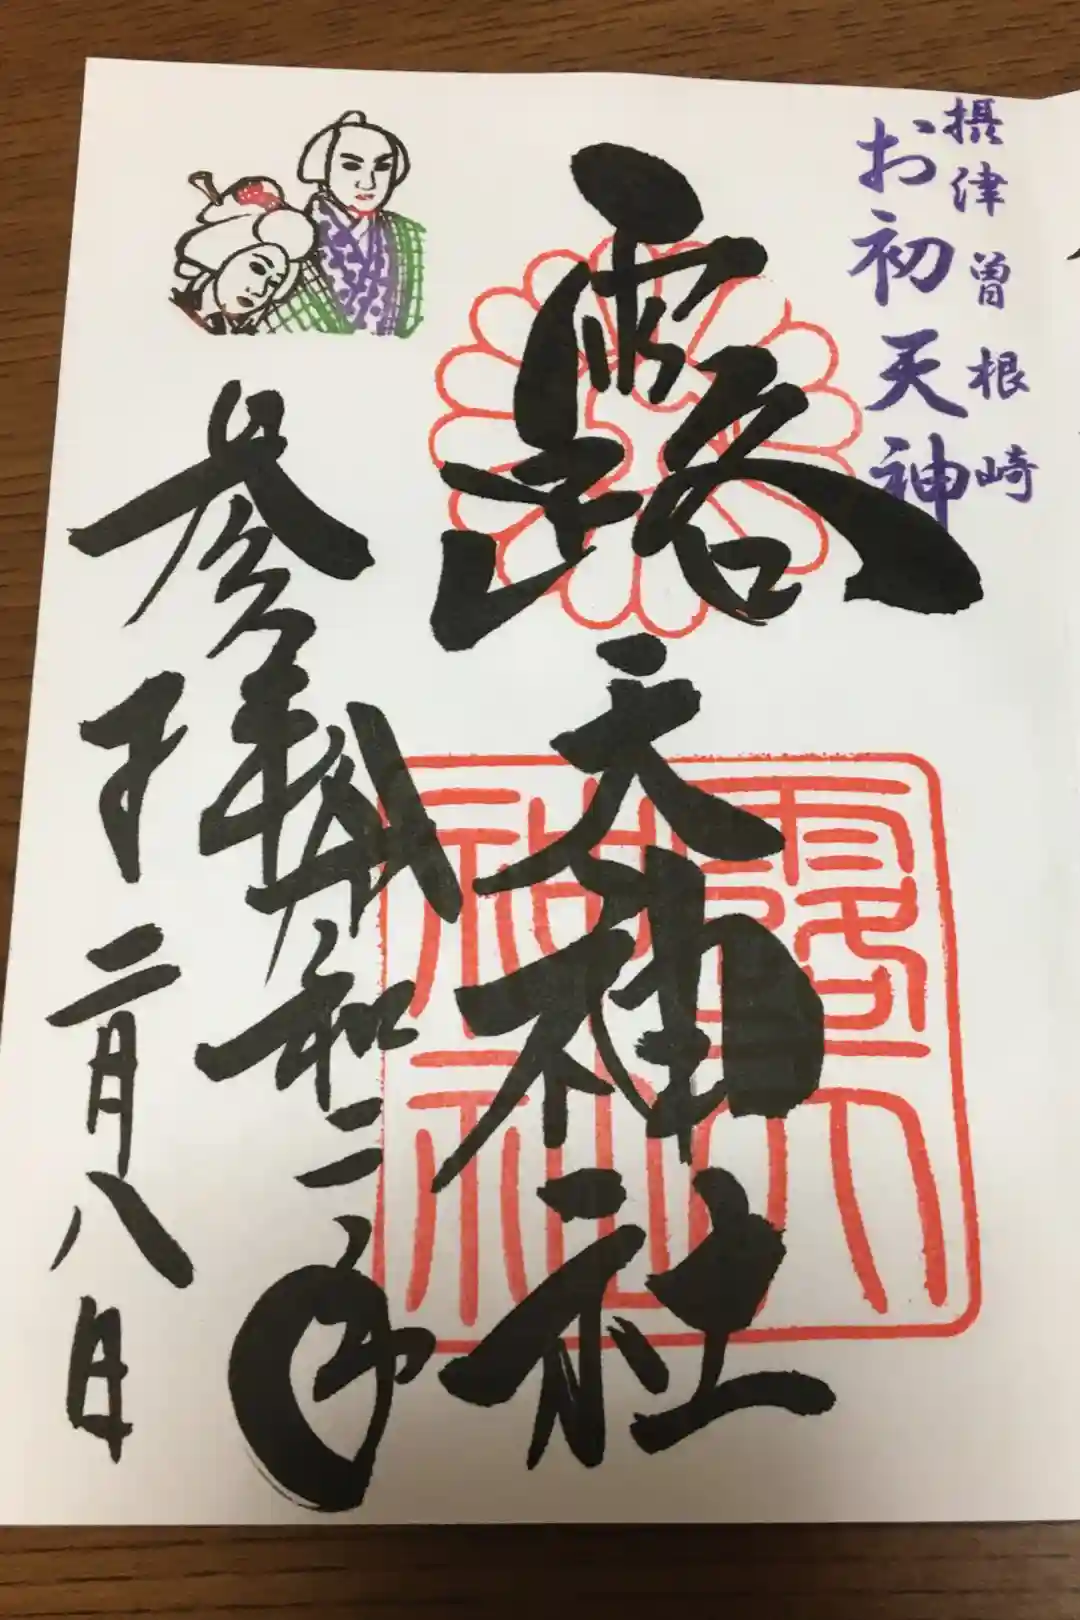 摂津曽根崎
お初天神
露天神社
参拝
令和二年
二月八日
露天
神社